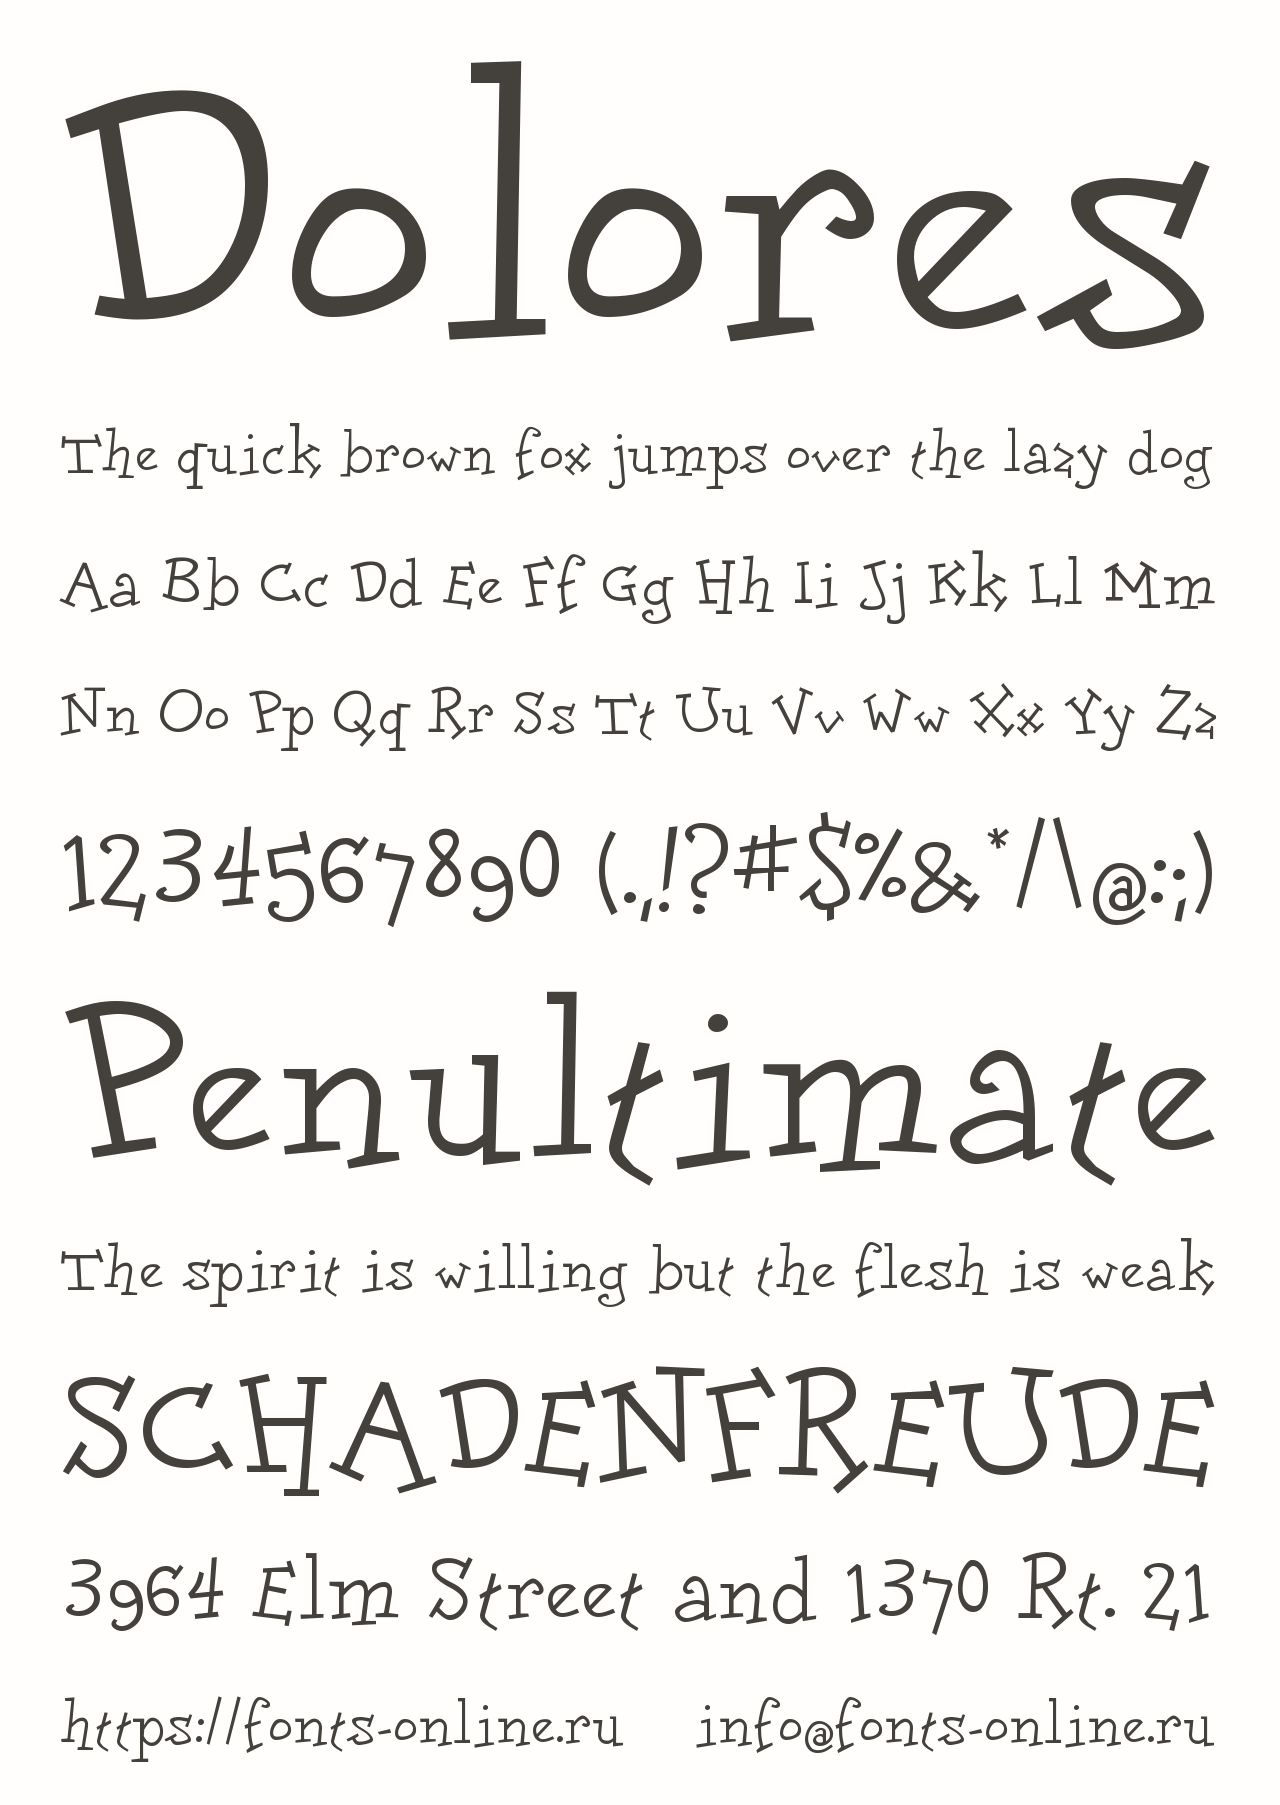 Dolores
The quick brown fox jumps over the lazy dog
Aa Bb Cc Dd Ee Ff Gg Hh Ii Jj Kk Ll Mm
Nn Oo Pp Qq Rr Ss Tt Uu Vv Ww Xx Yy Zz
1234567890 (.,!?#$%&*/\@:;)
Penultimate
The spirit is willing but the flesh is weak
SCHADENFREUDE
3964 Elm Street and 1370 Rt. 21
https://fonts-online.ru info@fonts-online.ru